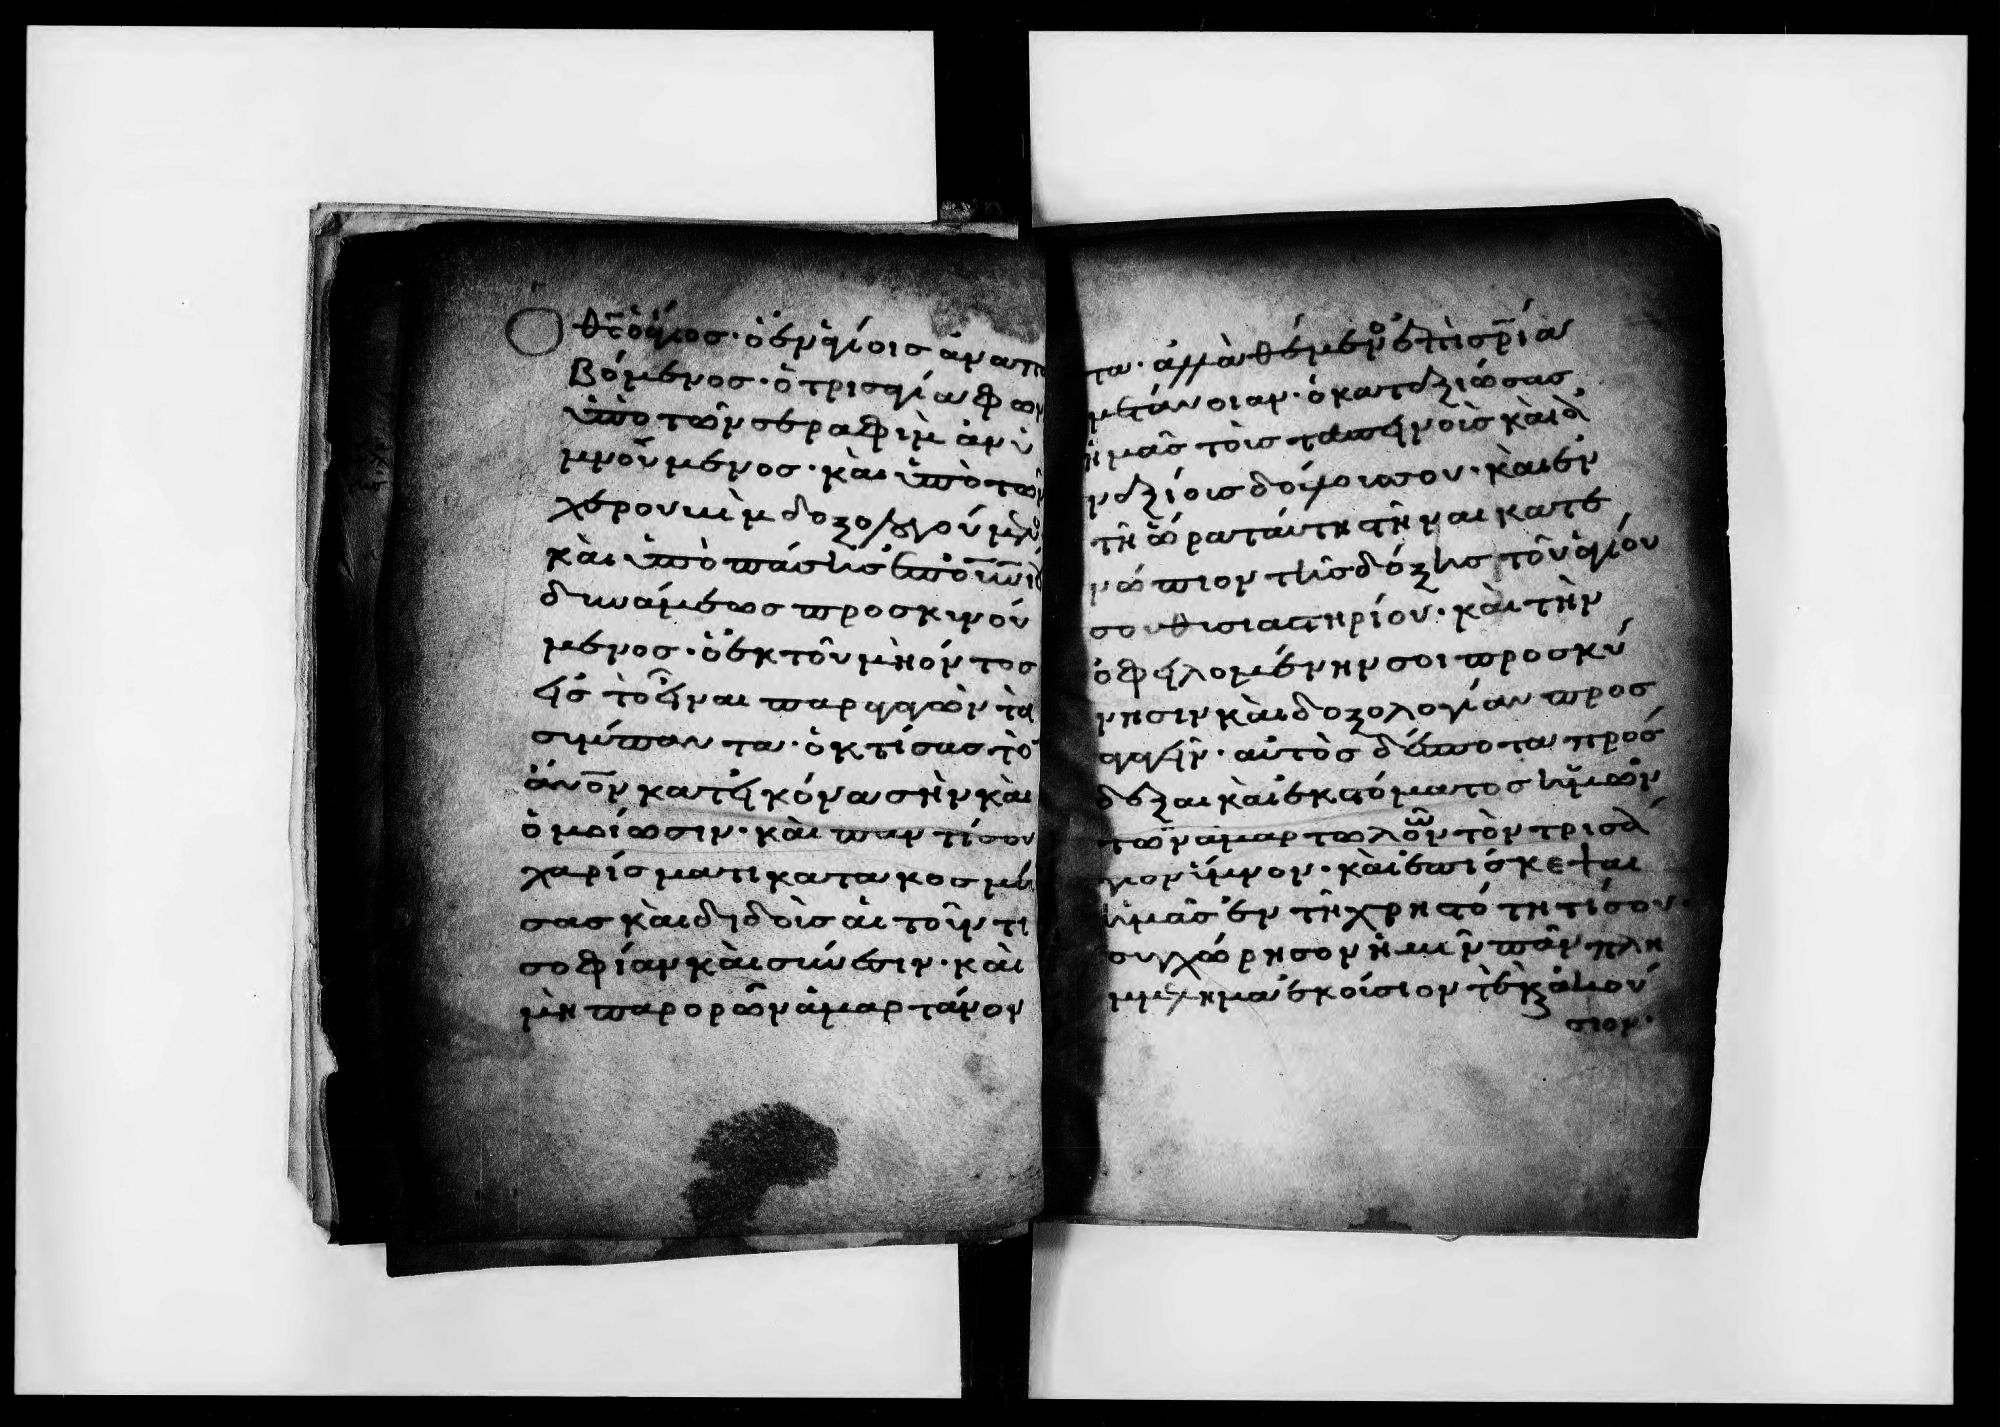 Ὁ θς ὁ ἅγιος· ὁ ἐν ἁγίοις ἀναπα
βόμενος· ὁ τρισαγίω φων
ὑπὸ τῶν σεραφὶμ ἀνυ
μνούμενος· καὶ ὑπὸ των
χερουβὶμ δοξολογούμενο
καὶ ὑπὸ πάσης ἐπουνίου
δυνάμεως προσκυνού
μενος· ὁ ἐκ τοῦ μὴ ὄντος
εἰς τὸ εἶναι παραγαγὼν τὰ
σύμπαντα· ὁ κτίσας τὸν
ἄνον κατ εἰκόνα σὴν καὶ
ὁμοίωσιν· καὶ παντί σου
χαρίσματι κατακοσμή
σας καὶ διδοὶς αἰτοῦντι
σοφίαν καὶ σύνεσιν· καὶ
μὴ παρορῶν ἁμαρτάνον
τα· ἀλλὰ θέμενος ἐπὶ σρία
μετάνοιαν· ὁ καταξιώσας
ἡμᾶς τοὶς ταπεινοὶς καὶ ἀ
ναξίοις δούλοις σου· καὶ ἐν
τῆ ὥρα ταύτη στῆναι κατε
νώπιον τῆς δόξης τοῦ ἁγίου
σου θισιαστηρίου· καὶ τὴν
ὀφειλομένην σοι προσκύ
νησιν καὶ δοξολογίαν προσ
αγαγεῖν· αὐτὸς δέσποτα πρόσ
δεξαι καὶ ἐκ στόματος ἡμῶν
τῶν ἁμαρτωλῶν τὸν τρισά
γιον ὕμνον· καὶ ἐπίσκεψαι
ἡμᾶς ἐν τῆ χρηστότητί σου·
συγχώρησον ἡμῖν πᾶν πλη
μμέλημα ἑκούσιον τὲ κ ἀκού
σιον·